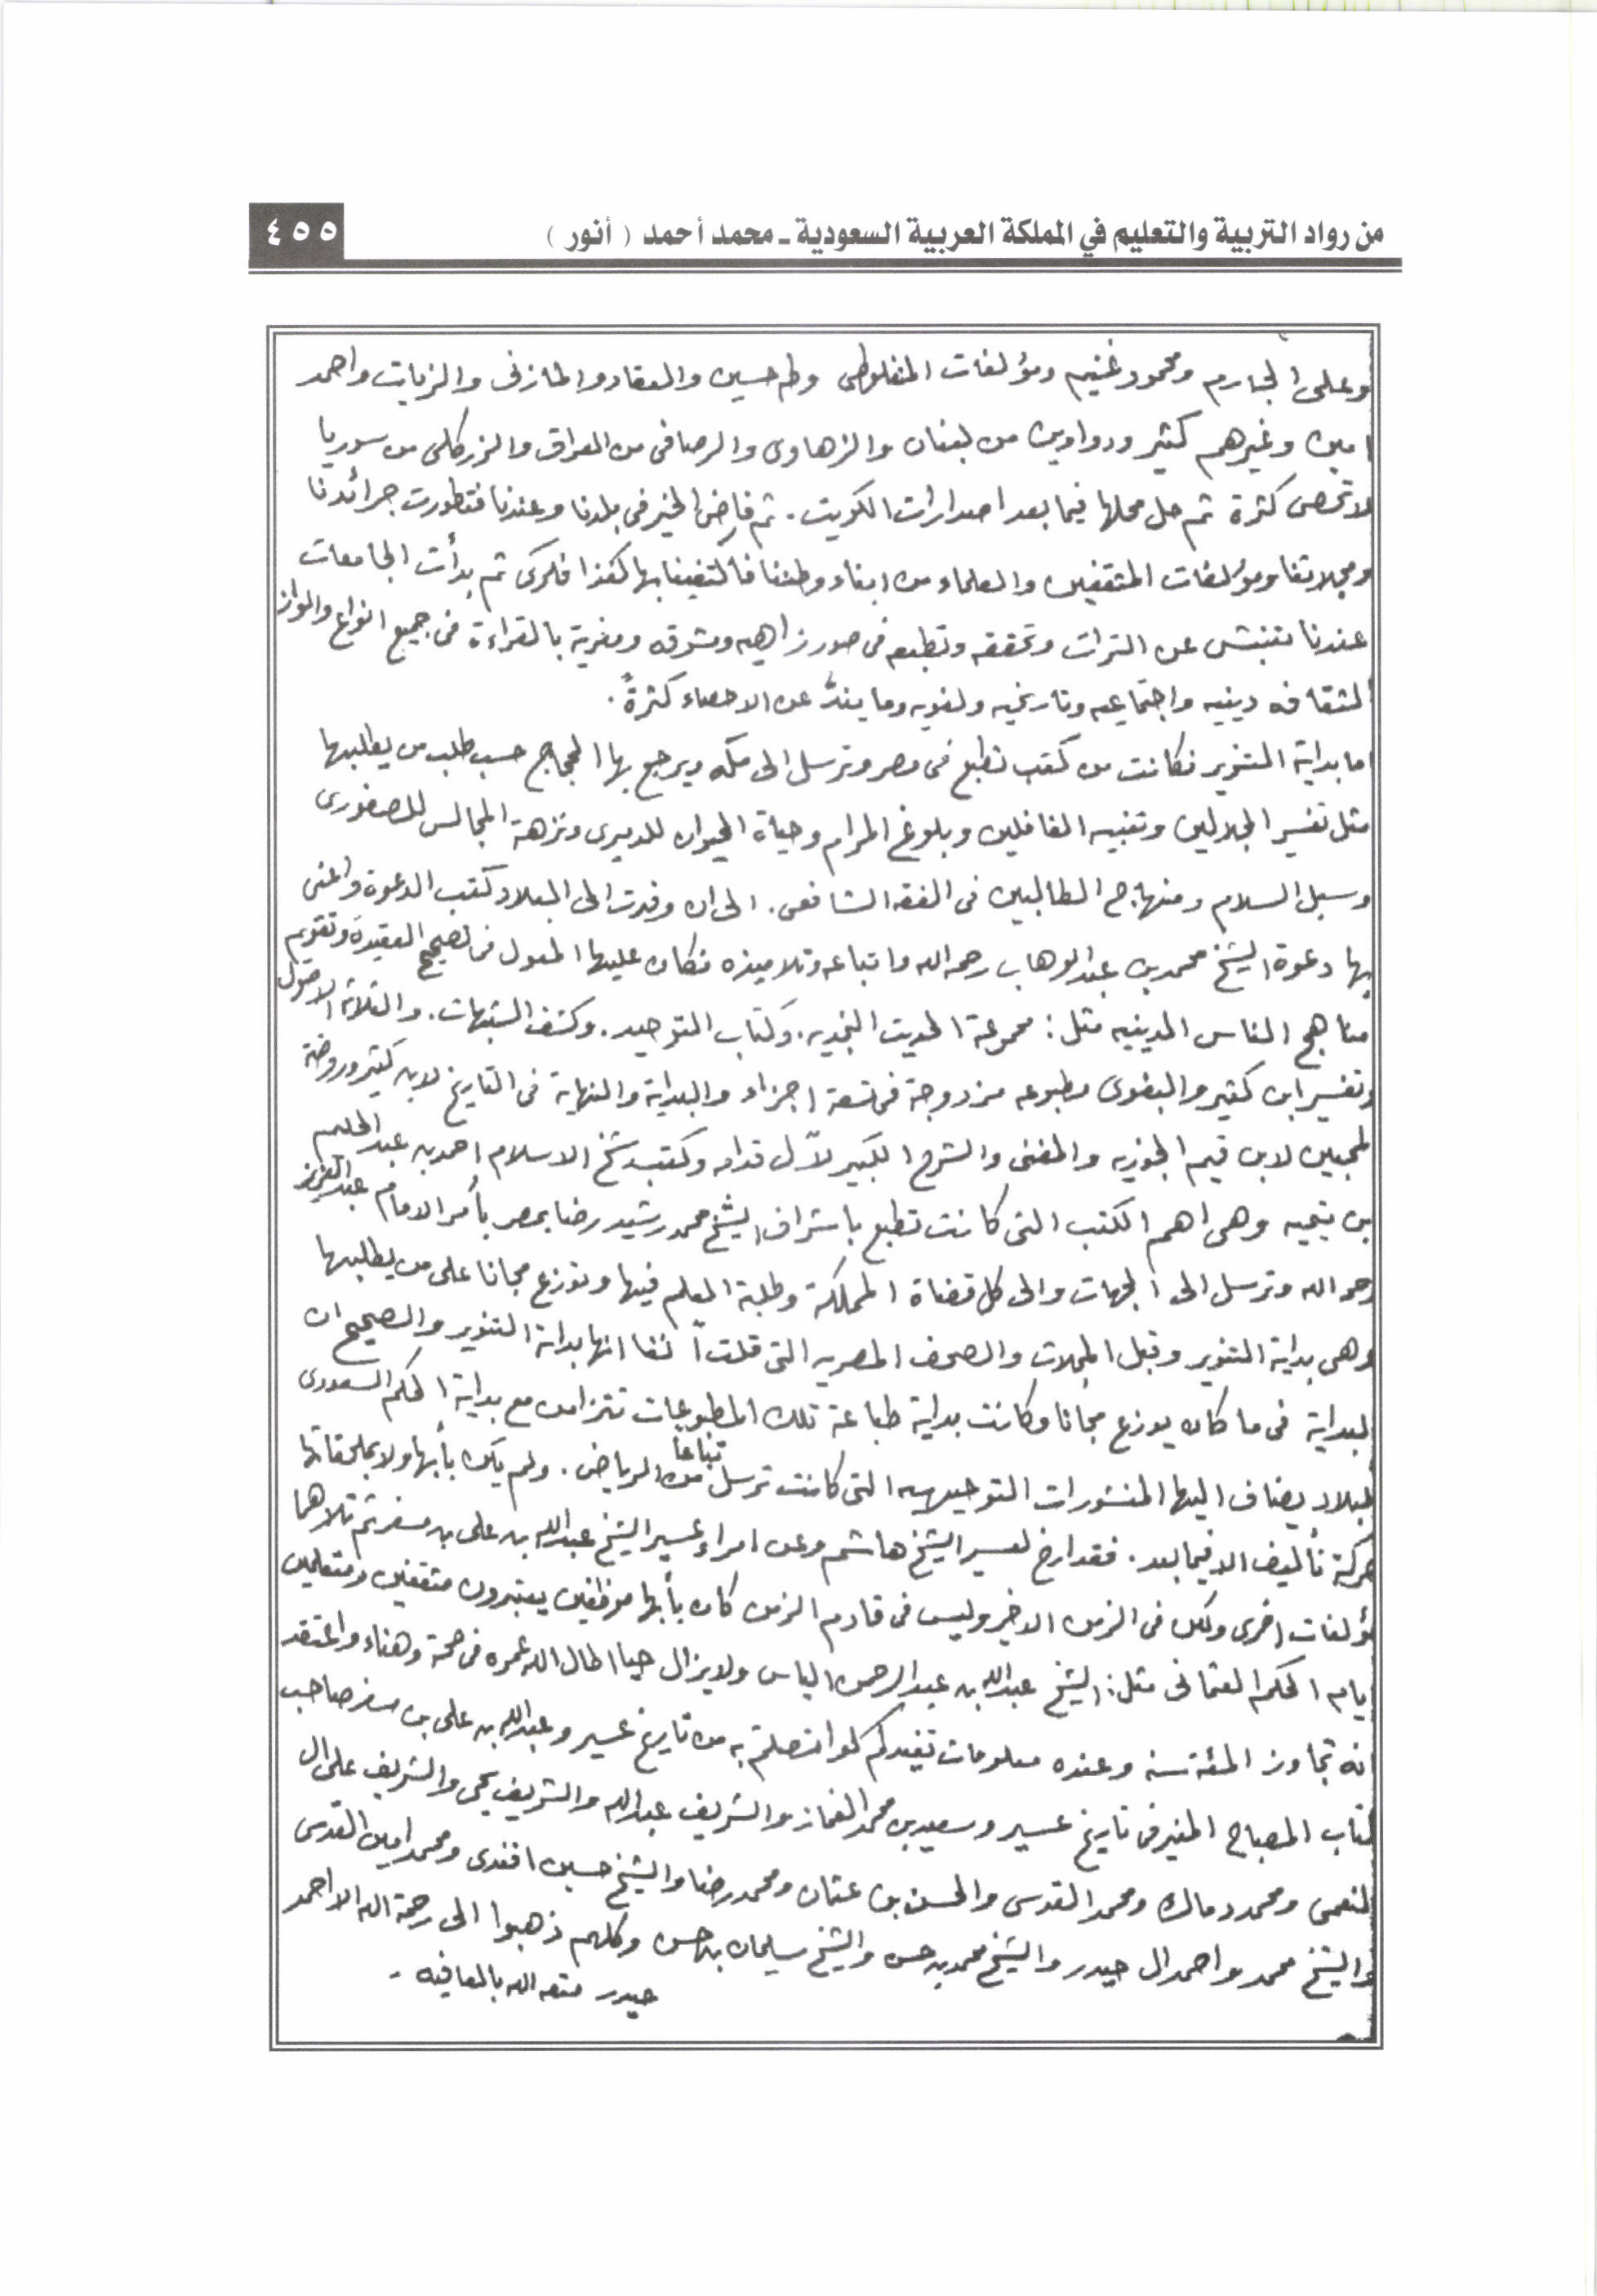 من رواد التربية والتعليم في المملكة العربية السعودية ـ محمد أحمد ( أنور )
٤٥٥
وعلى الجارم ومحمود غنيم ومؤلفات المنفلوطى وطه حسين والعقاد والمازنى والزيات واحمد
امين وغيرهم كثير ودواوين من لبنان والزهاوى والرصافى من العراق والزركلى من سوريا
لا تحصى كثرة ثم حل محلها فيما بعد اصدارات الكويت . ثم فاض الخير فى بلدنا وعندنا فتطورت جرائدنا
ومجلاتنا ومؤلفات المثقفين والعلماء من ابناء وطننا فاكتفينا بها كغذا فكرى ثم بدأت الجامعات
عندنا تنبش عن التراث وتحققه وتطبعه فى صور زاهيه ومشوقه ومغرية بالقراءة فى جميع انواع والوان
الثقافه دينيه واجتماعيه وتاريخيه ولغويه وما يندُّ عن الاحصاء كثرةً .
اما بداية التنوير فكانت من كتب تطبع فى مصر وترسل الى مكه ويرجع بها الحجاج حسب طلب من يطلبها
مثل تفسير الجلالين وتنبيه الغافلين وبلوغ المرام وحياة الحيوان للدميرى ونزهة المجالس للصفورى
وسبل السلام ومنهاج الطالبين فى الفقه الشافعى . الى ان وفدت الى البلاد كتب الدعوة والمعنى
بها دعوة الشيخ محمد بن عبد الوهاب رحمه الله واتباعه وتلاميذه فكان عليها المعول فى تصحيح العقيدة وتقويم
مناهج الناس الدينيه مثل : مجموعة الحديث النجديه . وكتاب التوحيد . وكشف الشبهات . والثلاثة الاصول
وتفسير ابن كثير والبغوى مطبوعه مزدوجة فى تسعة اجزاء والبداية والنهاية فى التاريخ لابن كثير وروضة
المحبين لابن قيم الجوزيه والمغنى والشرح الكبير لآل قدامه وكتب شيخ الاسلام احمد بن عبد الحليم
بن تيميه وهى اهم الكتب التى كانت تطبع باشراف الشيخ محمد رشيد رضا بمصر بأمر الامام عبد العزيز
رحمه الله وترسل الى الجهات والى كل قضاة المملكة وطلبة العلم فيها وتوزع مجانا على من يطلبها
وهى بداية التنوير وقبل المجلات والصحف المصريه التى قلت آنفا انها بداية التنوير والصحيح ان
البداية فى ما كان يوزع مجانا وكانت بداية طباعة تلك المطبوعات تتزامن مع بداية الحكم السعودى
للبلاد يضاف اليها المنشورات التوجيهيه التى كانت ترسل تباعاً من الرياض . ولم يكن بأبها ولا بملحقاتها
حركة تأليف الا فيما بعد . فقد ارخ لعسير الشيخ هاشم وعن امراء عسير الشيخ عبد الله بن على بن مسفر ثم تلاهما
مؤلفات اخرى ولكن فى الزمن الاخير وليس فى قادم الزمن كان بأبها موظفين يعتبرون مثقفين ومتعلمين
ايام الحكم العثمانى مثل : الشيخ عبد الله بن عبد الرحمن الياس ولا يزال حيا اطال الله عمره فى صحة وهناء واعتقد
انه تجاوز المئة سنه وعنده معلومات تفيدكم لو اتصلتم به من تاريخ عسير وعبد الله بن على بن مسفر صاحب
كتاب المصباح المنير فى تاريخ عسير وسعيد بن محمد الغماز والشريف عبد الله والشريف يحى والشريف على ال
النعمى ومحمود مالك ومحمد القدسى والحسن بن عثمان ومحمد رضا والشيخ حسين افندى ومحمد امين القدسى
والشيخ محمد واحمد ال حيدر والشيخ محمد بن حسن والشيخ سليمان بن حسن وكلهم ذهبوا الى رحمة الله الا احمد
حيدر متعه الله بالعافيه -